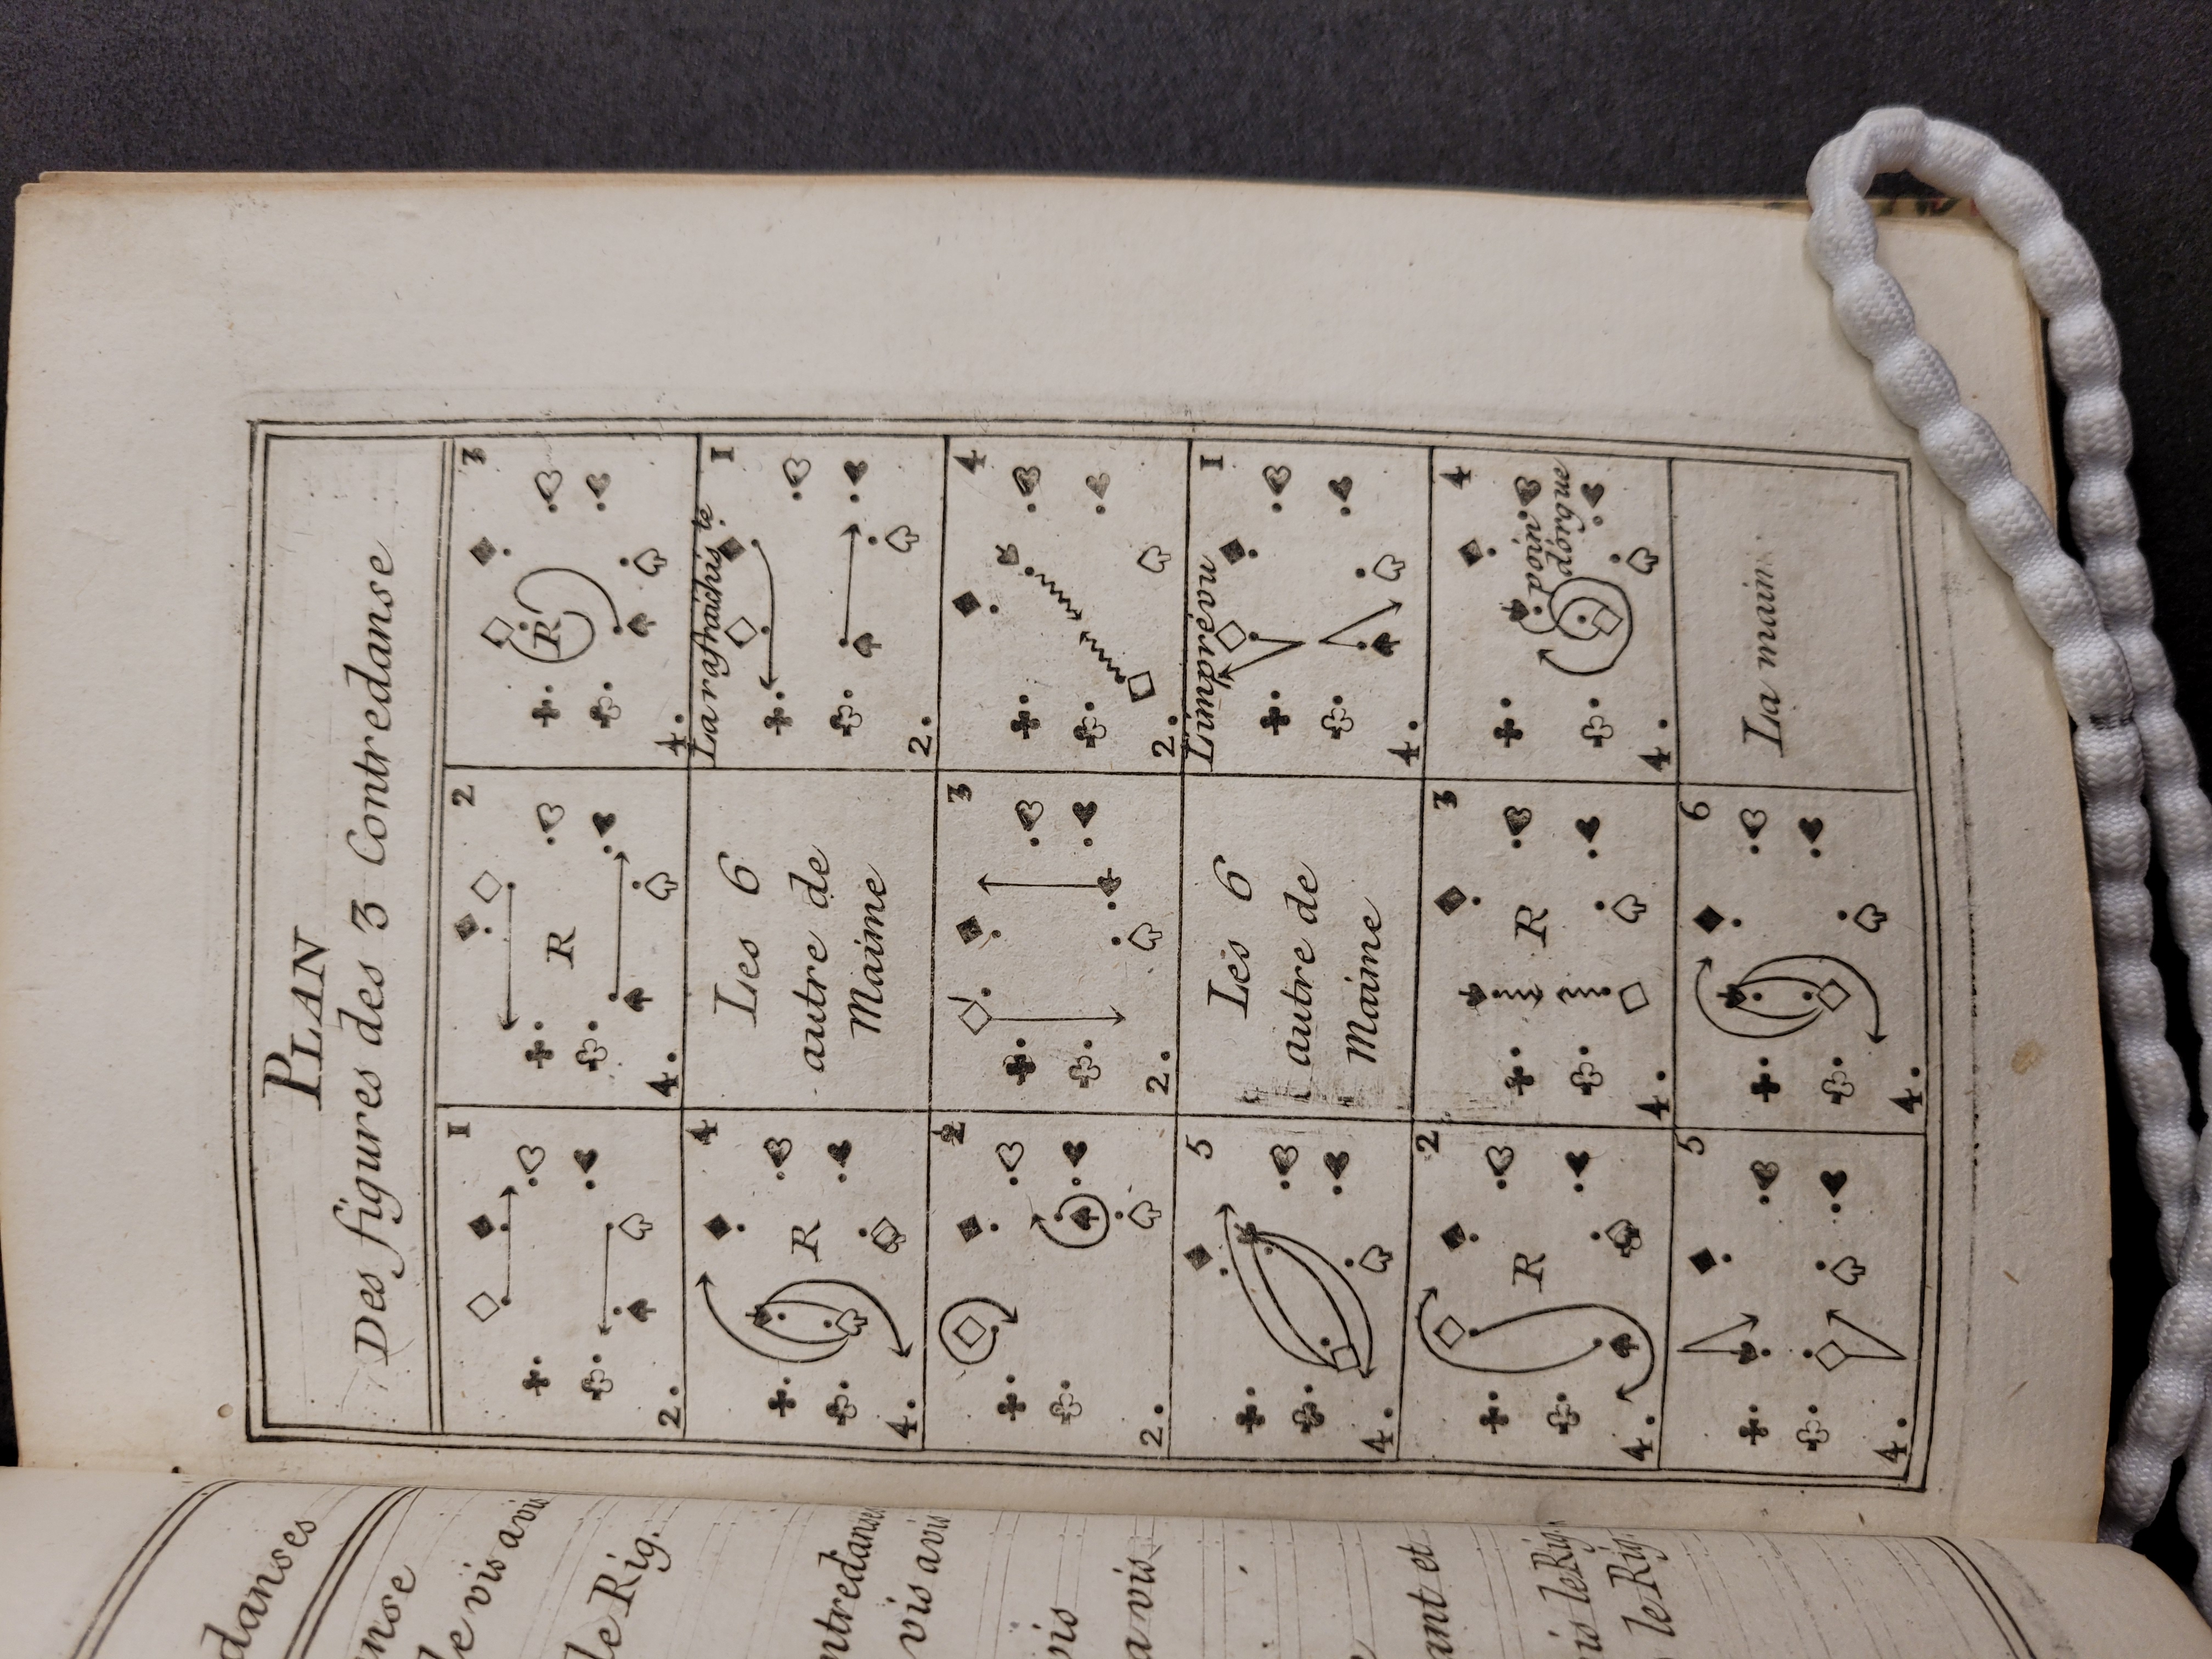 danses
nse
le vis avis
le Rig.
ntredanse
vis avis
vis
a vis
e
ant et
is le Rig.
le Rig.
PLAN
Des figures des 3 Contredanse
1
2.
2
R
4.
3
R
4.
4
R
4.
Les 6
autre de
Maime
La rafraichis te
1
2.
2
2.
3
2.
4
2.
5
4.
Les 6
autre de
Maime
L'imprévu
1
4.
2
R
4.
3
R
4.
4
poin
dórgue
4.
5
4.
6
4.
La main